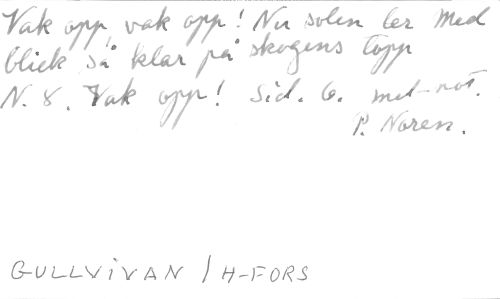 Vak opp, vak opp! Nu solen ler med
blick så klar på skogens topp
N. 8. Vak opp! Sid. 6. med-not.
P. Noren.
GULLVIVAN / H-FORS